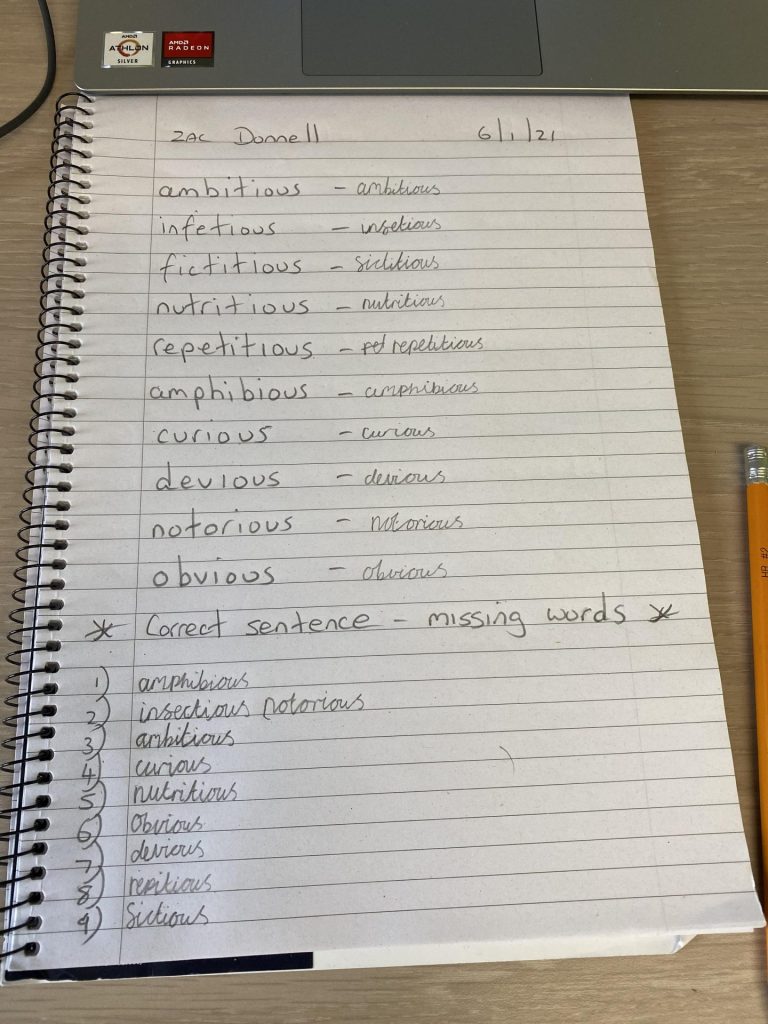 AMD ATHLON SILVER
AMD RADEON GRAPHICS
ZAC Donnell 6/1/21
ambitious - ambitious
infetious - insetious
fictitious - sictitious
nutritious - nutritious
repetitious - repetitious
amphibious - amphibious
curious - curious
devious - devious
notorious - notorious
obvious - obvious
* Correct sentence - missing words *
1) amphibious
2) insectious notorious
3) ambitious
4) curious
5) nutritious
6) Obvious
7) devious
8) repitious
9) Sictious
HB #2